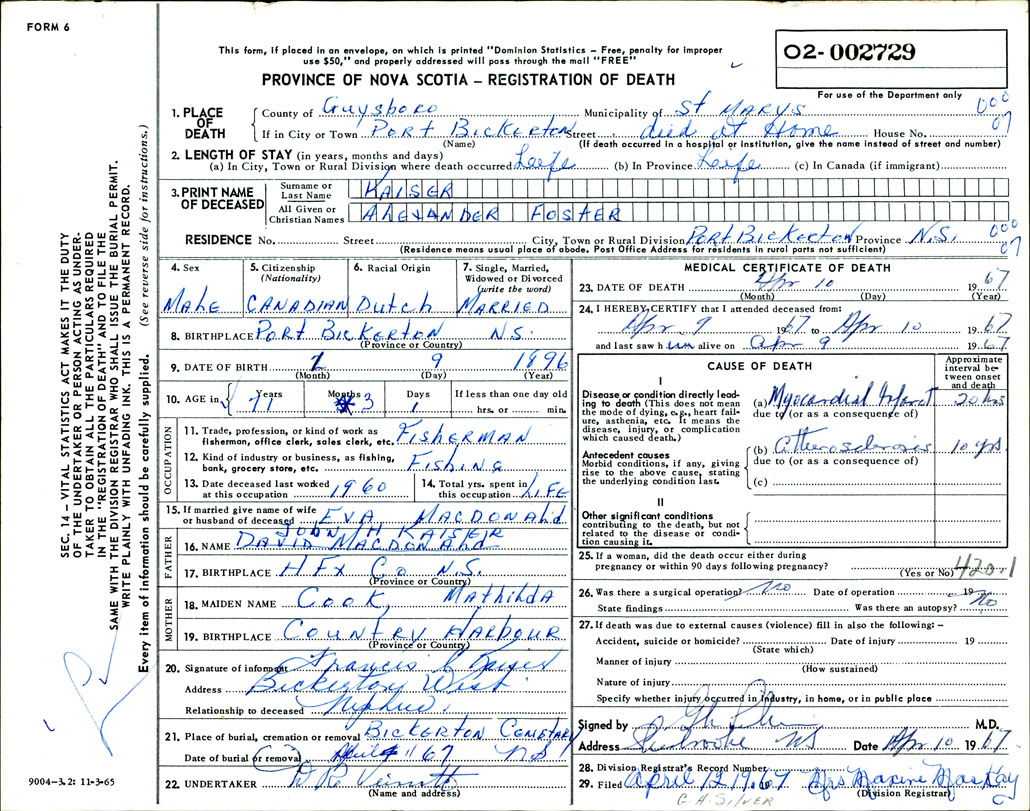 FORM 6
This form, if placed in an envelope, on which is printed "Dominion Statistics – Free, penalty for improper
use $50," and properly addressed will pass through the mail "FREE"
PROVINCE OF NOVA SCOTIA – REGISTRATION OF DEATH
02-002729
For use of the Department only
1. PLACE OF DEATH County of Guysboro Municipality of St MARYS 000
If in City or Town PORT BICKERTON Street died at Home House No. 07
(Name) (If death occurred in a hospital or institution, give the name instead of street and number)
2. LENGTH OF STAY (in years, months and days)
(a) In City, Town or Rural Division where death occurred Life (b) In Province Life (c) In Canada (if immigrant)
3. PRINT NAME OF DECEASED Surname or Last Name KAISER
All Given or Christian Names ALEXANDER FOSTER
RESIDENCE No. Street City, Town or Rural Division PORT BICKERTON Province N.S. 000 07
(Residence means usual place of abode. Post Office Address for residents in rural parts not sufficient)
4. Sex 5. Citizenship (Nationality) 6. Racial Origin 7. Single, Married, Widowed or Divorced (write the word)
MALE CANADIAN Dutch MARRIED
8. BIRTHPLACE PORT BICKERTON N.S.
(Province or Country)
9. DATE OF BIRTH 9 1896
(Month) (Day) (Year)
10. AGE in Years Months Days If less than one day old
71 3 1 hrs. or min.
OCCUPATION
11. Trade, profession, or kind of work as
fisherman, office clerk, sales clerk, etc. FISHERMAN
12. Kind of industry or business, as fishing,
bank, grocery store, etc. FISHING
13. Date deceased last worked at this occupation 1960 14. Total yrs. spent in this occupation LIFE
15. If married give name of wife
or husband of deceased EVA MACDONALD
FATHER
JOHN H KAISER
16. NAME DAVID MACDONALD
17. BIRTHPLACE HFX Co N.S.
(Province or Country)
MOTHER
18. MAIDEN NAME COOK, MATHILDA
19. BIRTHPLACE COUNTRY HARBOUR
(Province or Country)
20. Signature of informant Francis C Kaiser
Address Bickerton West
Relationship to deceased Nephew
21. Place of burial, cremation or removal BICKERTON CEMETARY
Date of burial or removal April 11 67 NS
22. UNDERTAKER
(Name and address)
MEDICAL CERTIFICATE OF DEATH
23. DATE OF DEATH Apr 10 19 67
(Month) (Day) (Year)
24. I HEREBY CERTIFY that I attended deceased from:
Apr 9 1967 to Apr 10 1967
and last saw h im alive on Apr 9 1967.
CAUSE OF DEATH
Approximate interval between onset and death
I
Disease or condition directly leading to death (This does not mean the mode of dying, e.g., heart failure, asthenia, etc. It means the disease, injury, or complication which caused death.)
(a) Myocardial Infarct 20 hrs
due to (or as a consequence of)
Antecedent causes
Morbid conditions, if any, giving rise to the above cause, stating the underlying condition last.
(b) Atherosclerosis 10 yrs
due to (or as a consequence of)
(c)
II
Other significant conditions
contributing to the death, but not related to the disease or condition causing it.
25. If a woman, did the death occur either during
pregnancy or within 90 days following pregnancy?
(Yes or No) 420.1
26. Was there a surgical operation? No Date of operation 19
State findings Was there an autopsy? No
27. If death was due to external causes (violence) fill in also the following: –
Accident, suicide or homicide? Date of injury 19
(State which)
Manner of injury
(How sustained)
Nature of injury
Specify whether injury occurred in Industry, in home, or in public place
Signed by M.D.
Address Sherbrooke NS Date Apr 10 1967
28. Division Registrar's Record Number
29. Filed April 12 1967 Mrs Maxine MacKay
(Division Registrar)
G.A. SILVER
SEC. 14 – VITAL STATISTICS ACT MAKES IT THE DUTY
OF THE UNDERTAKER OR PERSON ACTING AS UNDER-
TAKER TO OBTAIN ALL THE PARTICULARS REQUIRED
IN THE "REGISTRATION OF DEATH" AND TO FILE THE
SAME WITH THE DIVISION REGISTRAR WHO SHALL ISSUE THE BURIAL PERMIT.
WRITE PLAINLY WITH UNFADING INK. THIS IS A PERMANENT RECORD.
Every item of information should be carefully supplied. (See reverse side for instructions.)
9004-3.2: 11-3-65